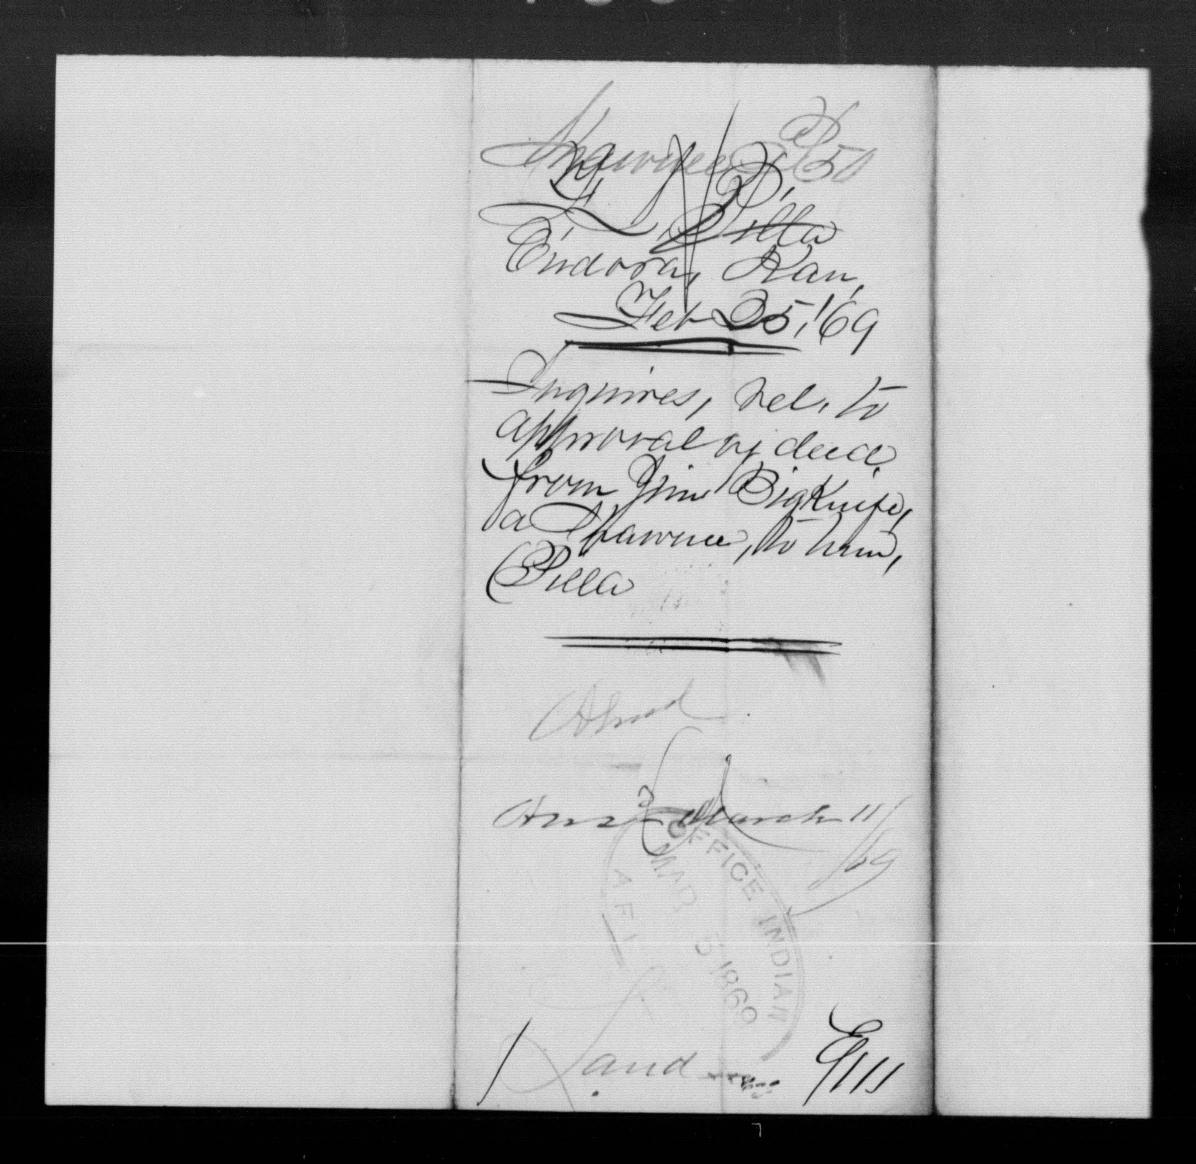 Shawnee P 50
P,
Pilla
Eudora, Kan,
Feb 25, '69
Inquires, rel. to
approval of deed
from Jim BigKnife,
a Shawnee, to him,
(Pilla
Ans March 11/69
OFFICE INDIAN
MAR 5 1869
AFF
Land